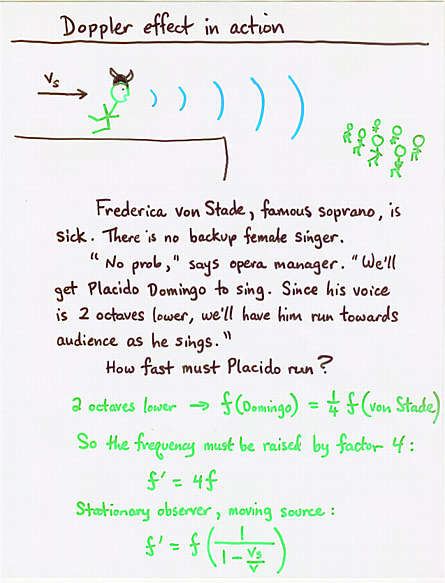 Doppler effect in action
vs
Frederica von Stade, famous soprano, is
sick. There is no backup female singer.
"No prob," says opera manager. "We'll
get Placido Domingo to sing. Since his voice
is 2 octaves lower, we'll have him run towards
audience as he sings."
How fast must Placido run?
2 octaves lower → f(Domingo) = 1/4 f(von Stade)
So the frequency must be raised by factor 4:
f' = 4f
Stationary observer, moving source:
f' = f(1/(1 - vs/v))